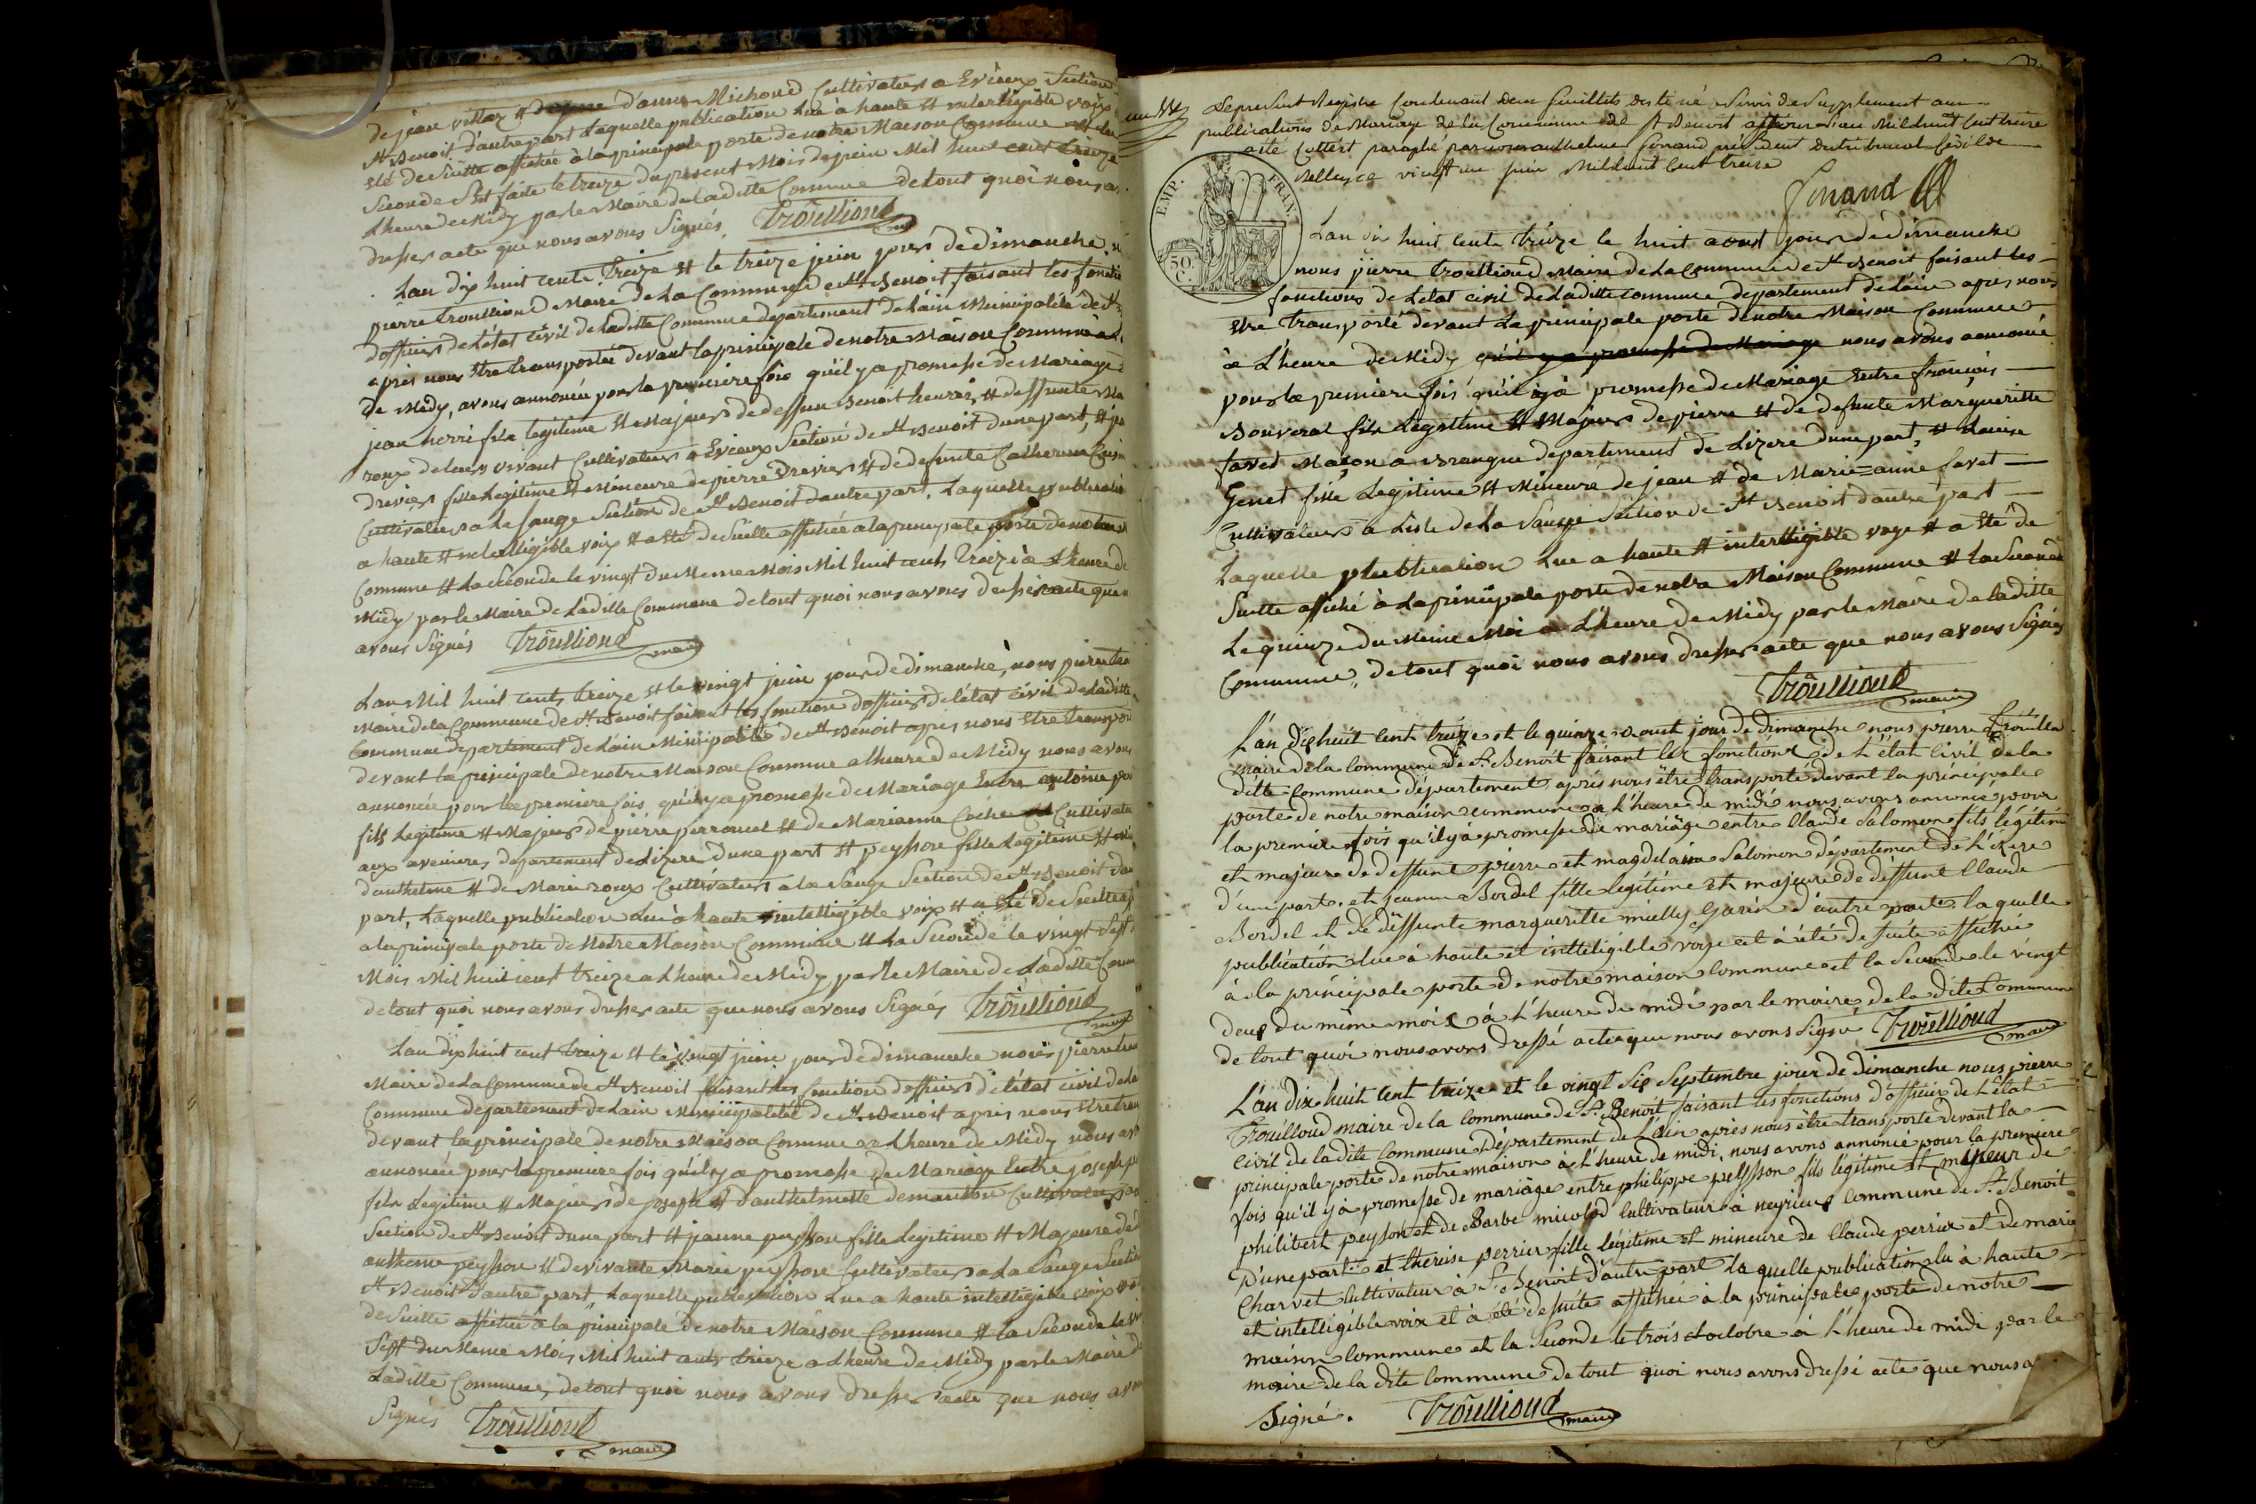 de jean villoz et d'anne Michoud Cultivateur a Evieux Section
St Benoit d'autre part Laquelle publication lue à haute et intelligible voix
eté de Suitte affichée à la principale porte de notre Maison Commune et la
Seconde S'est faite le treize du present Mois de juin Mil huit cent treize
L'heure de Midy par le Maire de Laditte Commune de tout quoi nous a
dresser acte que nous avons Signés. Troûllioud maire
Lan dix huit cents Treize et le treize juin jour de dimanche
pierre troullioud Maire de La Commune de St Benoit faisant les fonction
d'officier de L'état Civil de Laditte Commune departement de Lain Municipalité de St
apres nous Etre transportée devant la principale de notre Maison Commune a L
de Midy, avons annoncée pour la premiere fois qu'il y a promesse de Mariage
jean herri fils legitime et Majeur de deffun Benoit et deffunte Ma
roux de Leurs vivant Cultivateur a Evieux Section de St Benoit dune part, et
drevier fille Legitime et Mineure de pierre Drevier et de defunte Catherine
Cultivateur a La Sauge Section de St Benoit dautre part. Laquelle publication
a haute et intelligible voix et a eté de Suitte affichée a la principale porte de notre
Commune et La Seconde le vingt du Meme Mois Mil huit cents Treize à L'heure de
Midy par le Maire de Laditte Commune de tout quoi nous avons dressés acte que
avons Signés Troûllioud maire
Lan Mil huit cents treize et le vingt juin jour de dimanche, nous pierre trou
Maire de la Commune de St Benoit faisant les fonction d'officier de l'état Civil de Laditte
Commune departement de Lain Municipalité de St Benoit apres nous Etre transpor
devant la principale de notre Maison Commune a L'heure de Midy nous avons
annoncée pour la premiere fois qu'il y a promesse de Mariage Entre antoine
fils Legitime et Majeur de piérre perrouzet et de Marianne Cultivate
aux avenieres departement de Lizere d'une part et peysson fille Legitime et
d'anthelme et de Marie roux Cultivateur a la Sauge Section de St Benoit d'au
part, Laquelle publication Lue a haute intelligible voix et a Eté de Suitte
a la principale porte de Notre Maison Commune et La Seconde le vingt Sept
Mois Mil huit cent treize a L'heure de Midy par le Maire de Laditte Comm
de tout quoi nous avons dresser acte que nous avons Signés Troûllioud maire
Lan dix huit cent treize et le vingt juin jour de dimanche nous pierre trou
Maire de La Commune de St Benoit faisant les fonction d'officier de l'état civil de La
Commune departement de Lain Municipalité de St Benoit apres nous Etre tran
devant, la principale de notre Maison Commune a L'heure de Midy nous avo
annoncée pour la premiere fois qu'il y a promesse de Mariage Entre joseph
fils Legitime et Majeur de joseph et d'anthelmette demanton Cultivateur
Section de St Benoit d'une part et jeanne peysson fille Legitime et Majeure de
anthelme peysson et de vivante Marie peysson Cultivateur a La Sauge Section
St Benoit d'autre part Laquelle publication Lue a haute intelligible voix et
de Suitte affichée à la principale de notre Maison Commune et la Seconde le
Sept du Meme Mois Mil huit cents treize a L'heure de Midy par le Maire de
Laditte Commune, de tout quoi nous avons dresser acte que nous avons
Signés Troûllioud maire
Le present Registre Contenant deux feuillets destiné a Servir de Supplement aux
publications de Mariage de la Commune de St Benoit pour l'an Mil huit Cent treize
a été Cotté et paraphé par nous anthelme Genand président du tribunal Civil de
Belley ce vingt un juin Mil huit Cent treize
Genand
EMP. FRAN.
50 C.
Lan dix huit cents treize le huit aout jour de dimanche
nous pierre troullioud Maire de La Commune de St Benoit faisant les
fonctions de L'etat civil de Laditte commune departement de Lain apres nous
Etre transporté devant La principale porte de notre Maison Commune
a L'heure de Midy qu'il y a promesse de Mariage nous avons annoncé
pour la premiere fois qu'il y à promesse de Mariage Entre francois
Bouverat fils Legitime et Majeur de pierre et de defunte Margueritte
favet Maçon a Brangue departement de Lizere d'une part, et Louise
Genet fille Legitime et Mineure de jean et de Marie=anne favet
Cultivateur a Lisle de La Sauge Section de St Benoit d'autre part
Laquelle publication Lue a haute et intelligible voye et a eté de
Suitte affiché à la principale porte de notre Maison Commune et La Seconde
Le quinze du Meme Moi a L'heure de Midy par le Maire de Laditte
Commune, de tout quoi nous avons dresser acte que nous avons Signés
Troûllioud maire
L'an dix huit cent treize et le quinze aout jour de dimanche nous pierre Trouillou
maire de la commune de St Benoit faisant les fonctions de L'état Civil de la
ditte Commune département après nous être transporté devant la principale
porte de notre maison commune a L'heure de midi nous avons annoncé pour
la première fois qu'il y a promesse de mariàge entre Claude Salomon fils légitime
et majeur de deffunt pierre et magdelaine Salomon département de L'izere
d'une part et jeanne Bordel fille légitime et majeure de deffunt Claude
Bordel et de deffunte marguerite milly Garin d'autre part laquelle
publication lue à haute et intteligible voye et à été de suite affichée
à la principale porte de notre maison commune et la Seconde le vingt
deux du même mois à L'heure de midi par le maire de la dite Commune
de tout quoi nous avons dressé acte que nous avons Signé Troûllioud maire
L'an dix huit cent treize et le vingt six Septembre jour de dimanche nous pierre
Trouilloud maire de la commune de St Benoit faisant les fonctions d'officier de L'état
Civil de la dite Commune département de Lain après nous être transporté devant la
principale porte de notre maison à L'heure de midi, nous avons annoncé pour la premiere
fois qu'il y à promesse de mariàge entre philippe peysson fils légitime et mineur de
philibert peysson et de Barbe micolod Cultivateur à neyrieux Commune de St Benoit
D'une part et therese perrier fille légitime et mineure de Claude perrier et de marie
Charvet Cultivateur à St Benoit d'autre part laquelle publication lu à haute
et intelligible voix et à été de suite affichée à la principale porte de notre
maison Commune et la Seconde le trois d'octobre à L'heure de midi par le
maire de la dite Commune de tout quoi nous avons dressé acte que nous a
Signé. Troûllioud maire